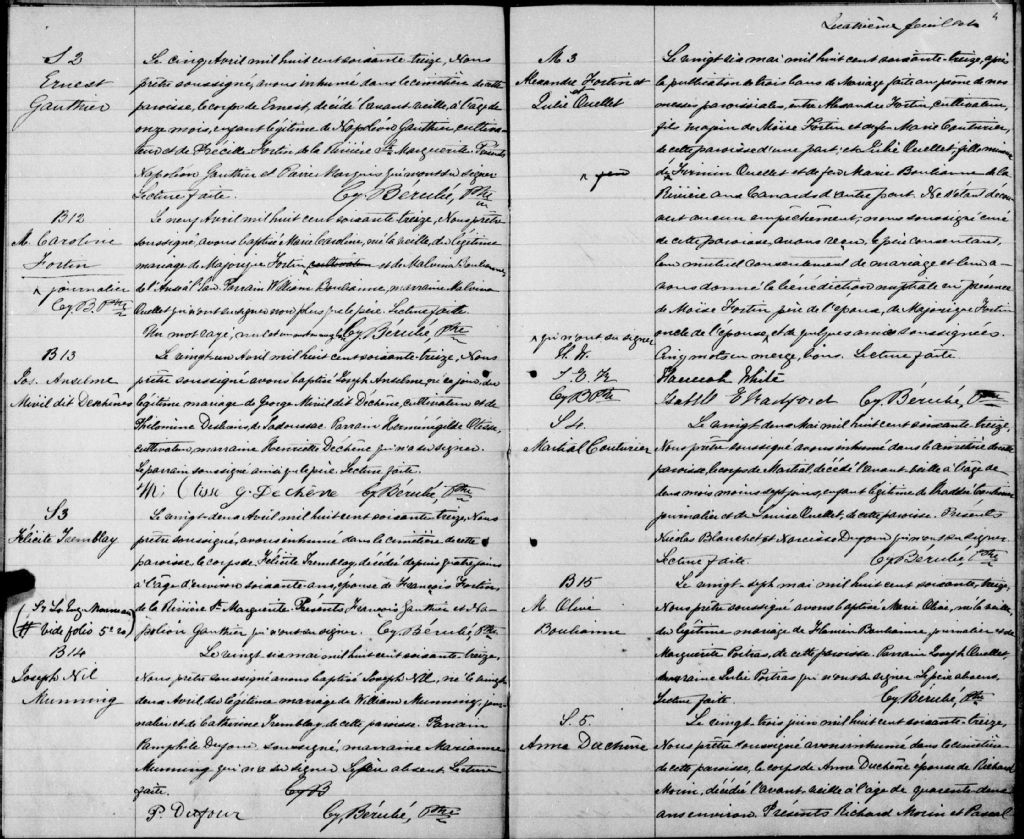 S 2
Ernest
Gauthier
Le cinq Avril mil huit cent soixante-treize, Nous
prêtre soussigné, avons inhumé dans le cimetière de cette
paroisse, le corps de Ernest, décédé l'avant-veille, à l'âge de
onze mois, enfant légitime de Napoléon Gauthier, cultiva-
teur et de Fortin de la Rivière Ste Marguerite. Présents
Napoléon Gauthier et Pierre qui n'ont su signer
Lecture faite. Cy. Bérubé, Ptre
B 12
M. Caroline
Fortin
^ journalier
Cy. B. Ptre
Le neuf Avril mil huit cent soixante-treize, Nous prêtre
soussigné, avons baptisé Marie Caroline, née la veille, du légitime
mariage de Majorique Fortin ^ cultivateur et de Malvina Boulianne
de l'Anse à l'Eau. Parrain William Boulianne, marraine Malvina
Ouellet qui n'ont su signer non plus que le père. Lecture faite.
Un mot rayé, nul Cy. Bérubé, Ptre
B 13
Jos. Anselme
Miville dit Deschênes
Le vingt-un Avril mil huit cent soixante-treize, Nous
prêtre soussigné avons baptisé Joseph Anselme né ce jour, du
légitime mariage de George Mivil dit Dechêne, cultivateur et de
Philomine Desbiens, de Tadoussac. Parrain Herménégilde Otisse,
cultivateur, marraine Henriette Dechêne qui n'a su signer.
Le parrain soussigné ainsi que le père. Lecture faite.
Otisse G. Dechêne Cy. Bérubé, Ptre
S 3
Félicité Tremblay
Le vingt-deux Avril mil huit cent soixante-treize, Nous
prêtre soussigné, avons inhumé dans le cimetière de cette
paroisse, le corps de Félicité Tremblay, décédée depuis quatre jours
à l'âge d'environ soixante ans, épouse de François Fortin
de la Rivière Ste Marguerite. Présents, François Gauthier et Na-
poléon Gauthier qui n'ont su signer. Cy. Bérubé, Ptre
vide folio 5 ro
B 14
Joseph Nil
Munning
Le vingt six mai mil huit cent soixante-treize,
Nous prêtre soussigné avons baptisé Joseph Nil, né le vingt-
deux Avril du légitime mariage de William Munning, jour-
nalier et de Catherine Tremblay de cette paroisse. Parrain
Pamphile Dufour soussigné, marraine Marianne
Munning qui n'a su signer. Le père absent. Lecture
faite. Cy B
P. Dufour Cy. Bérubé, Ptre
4
Quatrième feuillet
M 3
Alexandre Fortin et
Julie Ouellet
Le vingt six mai mil huit cent soixante-treize, après
la publication de trois bans de Mariage faite au prône de nos
messes paroissiales, entre Alexandre Fortin, cultivateur,
fils majeur de Moïse Fortin et de feu Marie Couturier,
de cette paroisse d'une part; et Julie Ouellet, fille mineure
de Firmin Ouellet et de feu Marie Boulianne de la
Rivière aux Canards d'autre part. Ne s'étant décou-
vert aucun empêchement; nous soussigné curé
de cette paroisse, avons reçu, le père consentant,
leur mutuel consentement de mariage et leur a-
vons donné la bénédiction nuptiale en présence
de Moïse Fortin, père de l'époux, de Majorique Fortin
oncle de l'époux, ^ et de quelques amies soussignées.
^ qui n'ont su signer
H. W.
Cy B Ptre
Cinq mots en marge, bons. Lecture faite.
Hannah White
Isabell E Radford Cy. Bérubé, Ptre
S 4.
Martial Couturier
Le vingt deux Mai mil huit cent soixante treize,
Nous prêtre soussigné avons inhumé dans le cimetière de cette
paroisse le corps de Martial, décédé l'avant veille à l'âge de
deux mois moins sept jours, enfant légitime de Thaddé Couturier
journalier et de Louise Ouellet, de cette paroisse. Présents
Nicolas Blanchet et Narcisse Dufour qui n'ont su signer.
Lecture faite. Cy. Bérubé, Ptre
B 15
M. Olive
Boulianne
Le vingt-sept mai mil huit cent soixante, treize,
Nous prêtre soussigné avons baptisé Marie Olive, née la veille,
du légitime mariage de Boulianne, journalier et de
Marguerite Poitras, de cette paroisse. Parrain Joseph Ouellet,
marraine Julie Poitras qui n'ont su signer. Le père absent.
Lecture faite. Cy. Bérubé, Ptre
S. 5.
Anne Duchêne
Le vingt-trois juin mil huit cent soixante-treize,
Nous prêtre soussigné avons inhumé dans le cimetière
de cette paroisse, le corps de Anne Duchêne épouse de Richard
Morin, décédée l'avant veille à l'âge de quarante-deux
ans environ. Présents Richard Morin et Pascal